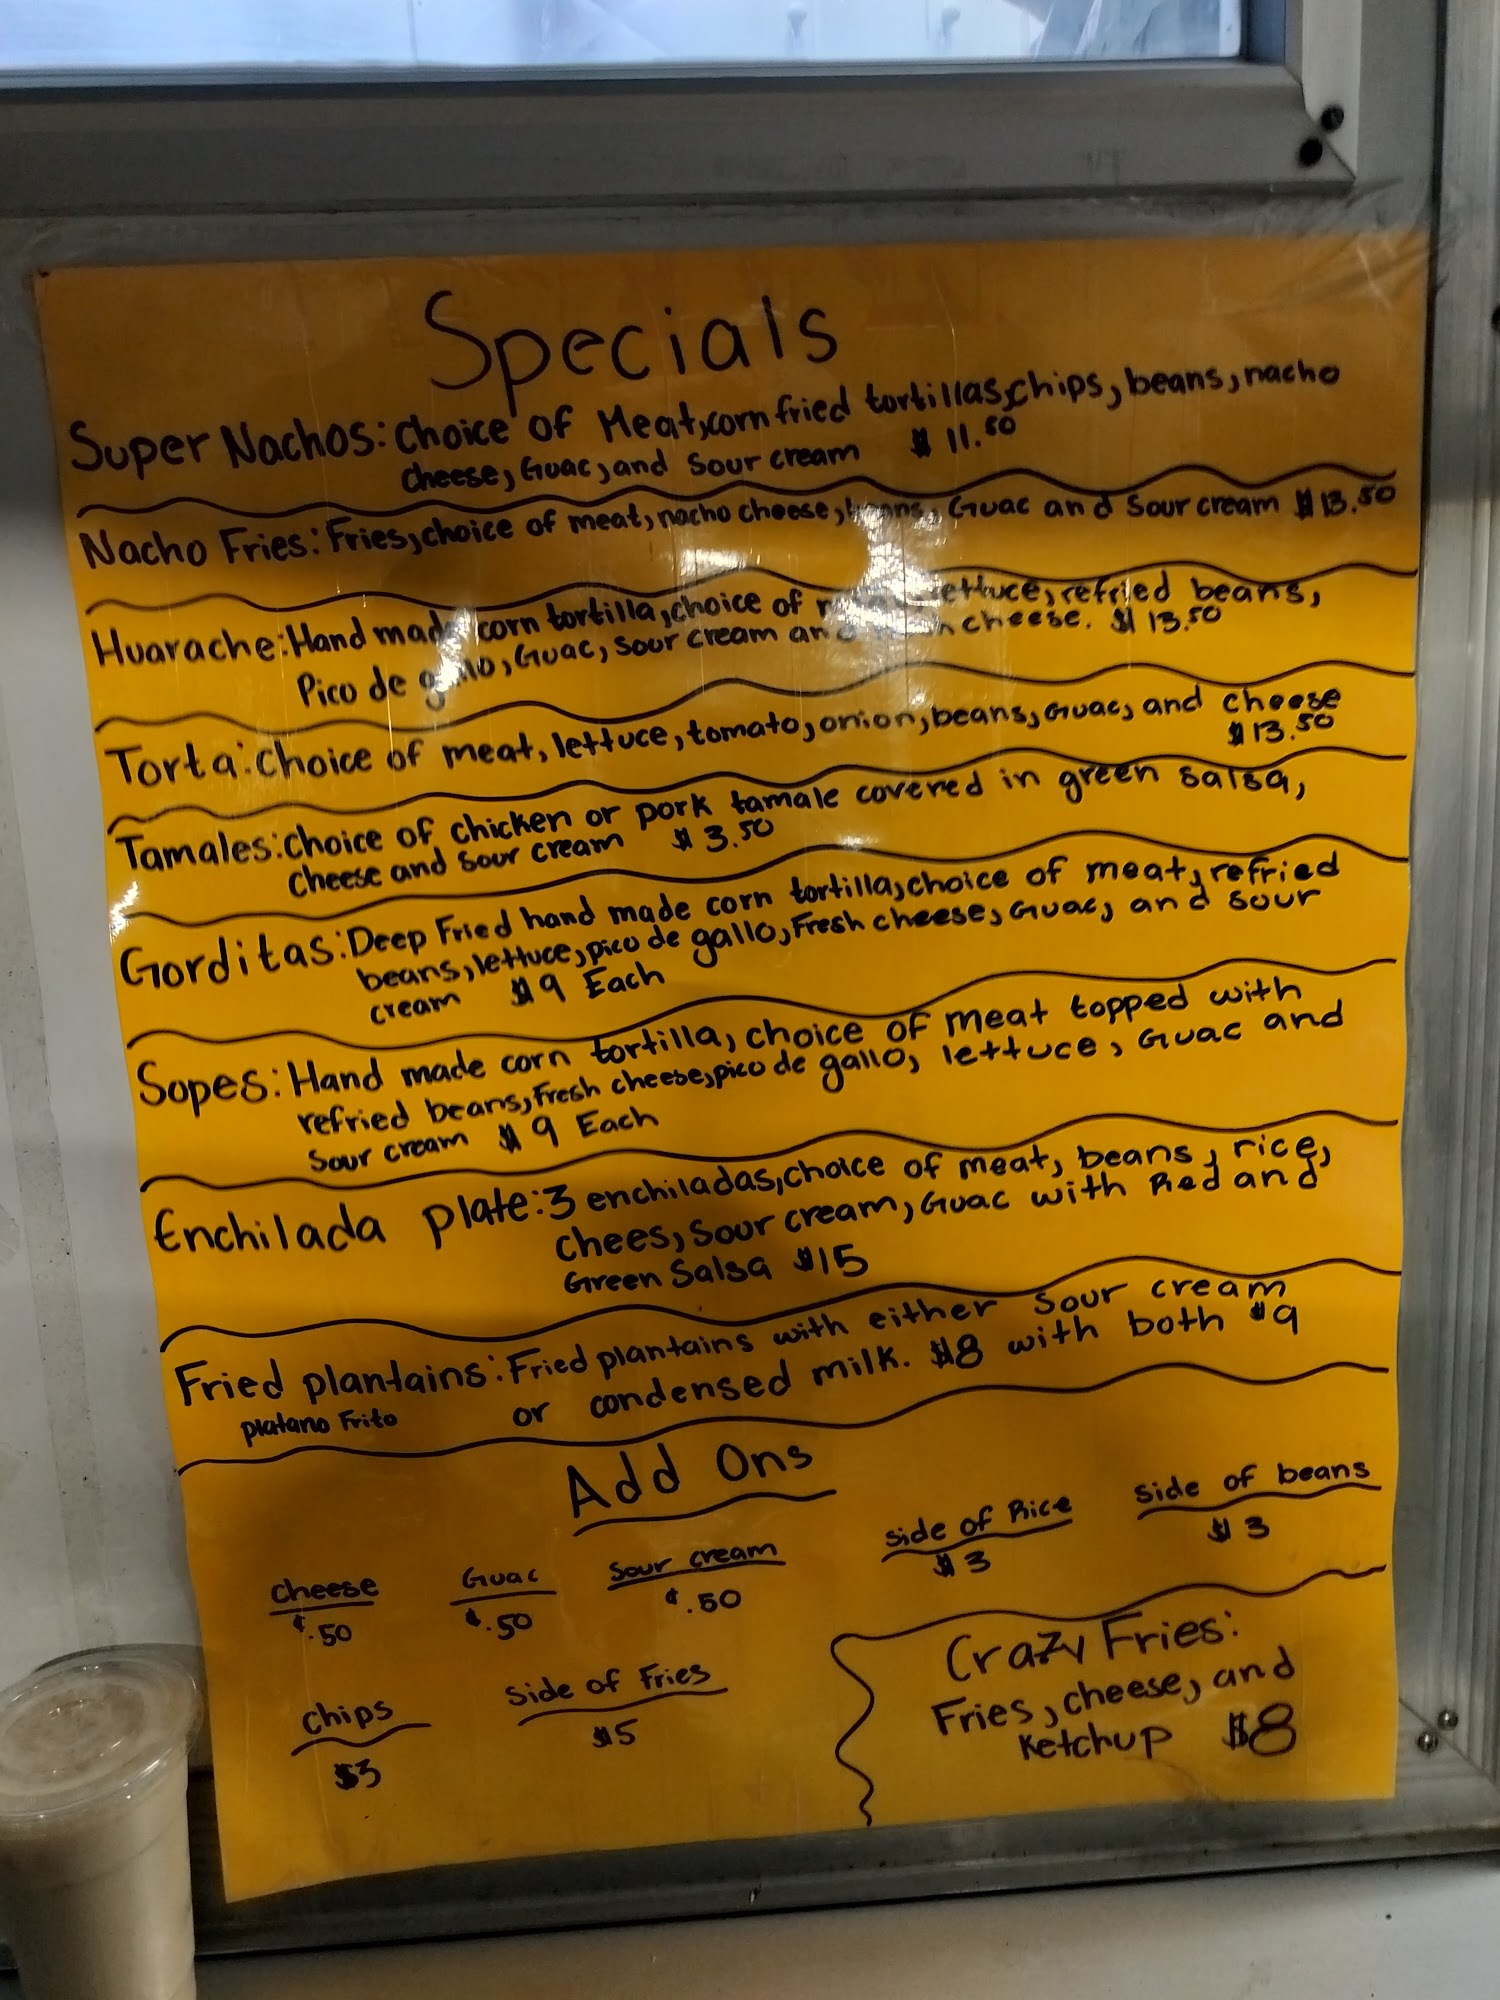 Specials
Super Nachos: Choice of Meat, corn fried tortillas chips, beans, nacho
cheese, Guac, and Sour cream $ 11.50
Nacho Fries: Fries, choice of meat, nacho cheese, beans, Guac and Sour cream $ 13.50
Huarache: Hand made corn tortilla, choice of lettuce, refried beans,
Pico de gallo, Guac, Sour cream and cheese. $ 13.50
Torta: Choice of meat, lettuce, tomato, onion, beans, Guac, and cheese
$ 13.50
Tamales: Choice of chicken or pork tamale covered in green salsa,
cheese and sour cream $ 3.50
Gorditas: Deep Fried hand made corn tortilla, choice of meat, refried
beans, lettuce, pico de gallo, Fresh cheese, Guac, and sour
cream $ 9 Each
Sopes: Hand made corn tortilla, choice of meat topped with
refried beans, Fresh cheese, pico de gallo, lettuce, Guac and
Sour cream $ 9 Each
Enchilada plate: 3 enchiladas, choice of meat, beans, rice,
chees, Sour cream, Guac with Red and
Green Salsa $15
Fried plantains: Fried plantains with either sour cream
platano Frito or condensed milk. $8 with both $9
Add Ons
Cheese Guac Sour cream Side of Rice Side of beans
¢.50 ¢.50 ¢.50 $3 $3
Chips Side of Fries
$3 $5
Crazy Fries:
Fries, cheese, and
Ketchup $8